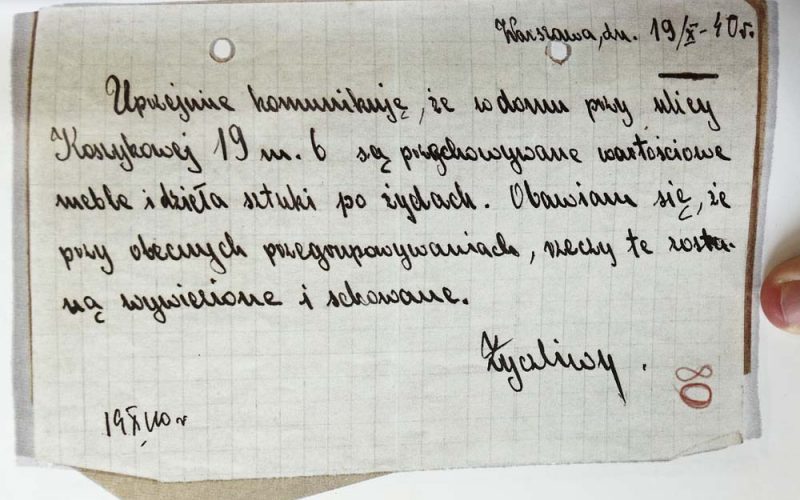 Warszawa, dn. 19/X-40r.
Uprzejmie komunikuję, że w domu przy ulicy
Koszykowej 19 m. 6 są przechowywane wartościowe
meble i dzieła sztuki po żydach. Obawiam się, że
przy obecnych przegrupowywaniach, rzeczy te zosta-
ną wywiezione i schowane.
Życzliwy.
80
19X40r